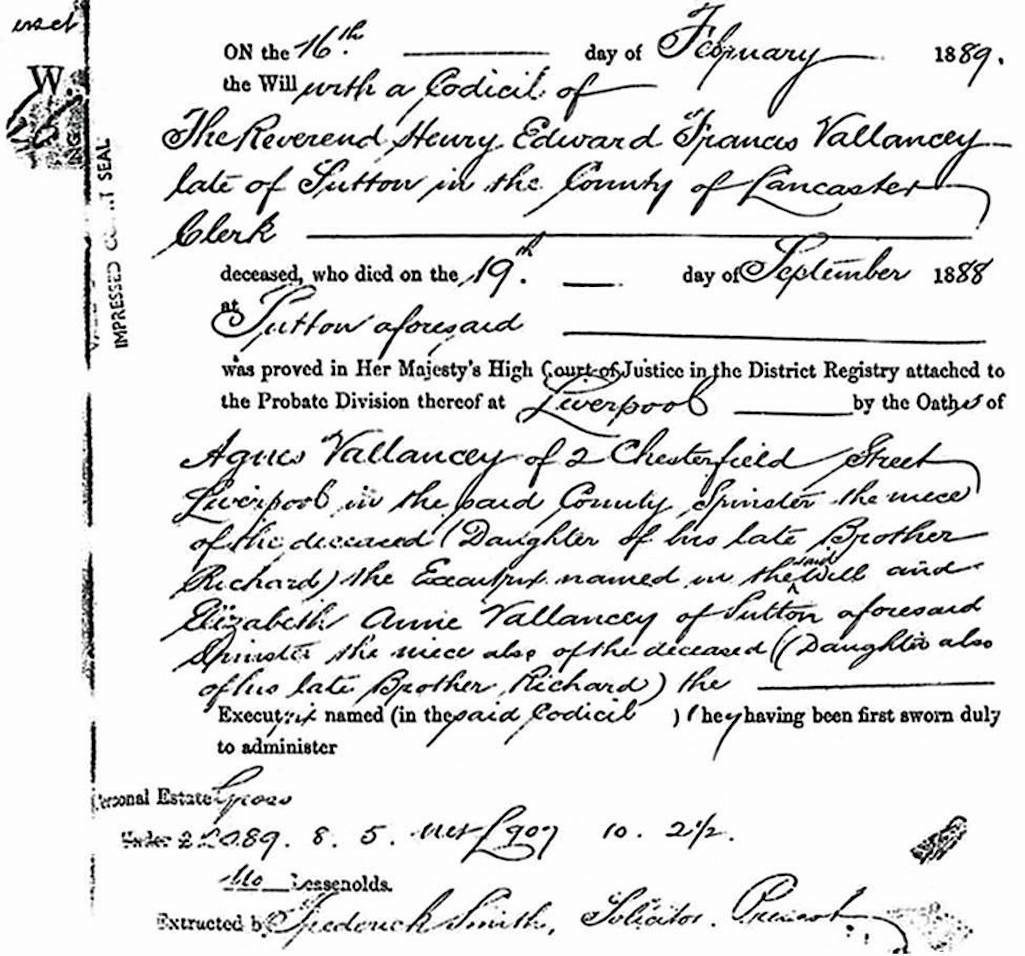 W
IMPRESSED SEAL
ON the 16th. day of February 1889.
the Will with a Codicil of
The Reverend Henry Edward Francis Vallancey
late of Sutton in the County of Lancaster
Clerk
deceased, who died on the 19th. day of September 1888
at Sutton aforesaid
was proved in Her Majesty's High Court of Justice in the District Registry attached to
the Probate Division thereof at Liverpool by the Oaths of
Agnes Vallancey of 2 Chesterfield Street
Liverpool in the said County Spinster the niece
of the deceased (Daughter of his late Brother
Richard) the Executrix named in the said Will and
Elizabeth Annie Vallancey of Sutton aforesaid
Spinster the niece also of the deceased (Daughter also
of his late Brother Richard) the
Executrix named (in the said Codicil ) they having been first sworn duly
to administer
Personal Estate Gross
89. 8. 5. Net £907 10. 2½.
No Leaseholds.
Extracted by Frederick Smith, Solicitor. Prescot